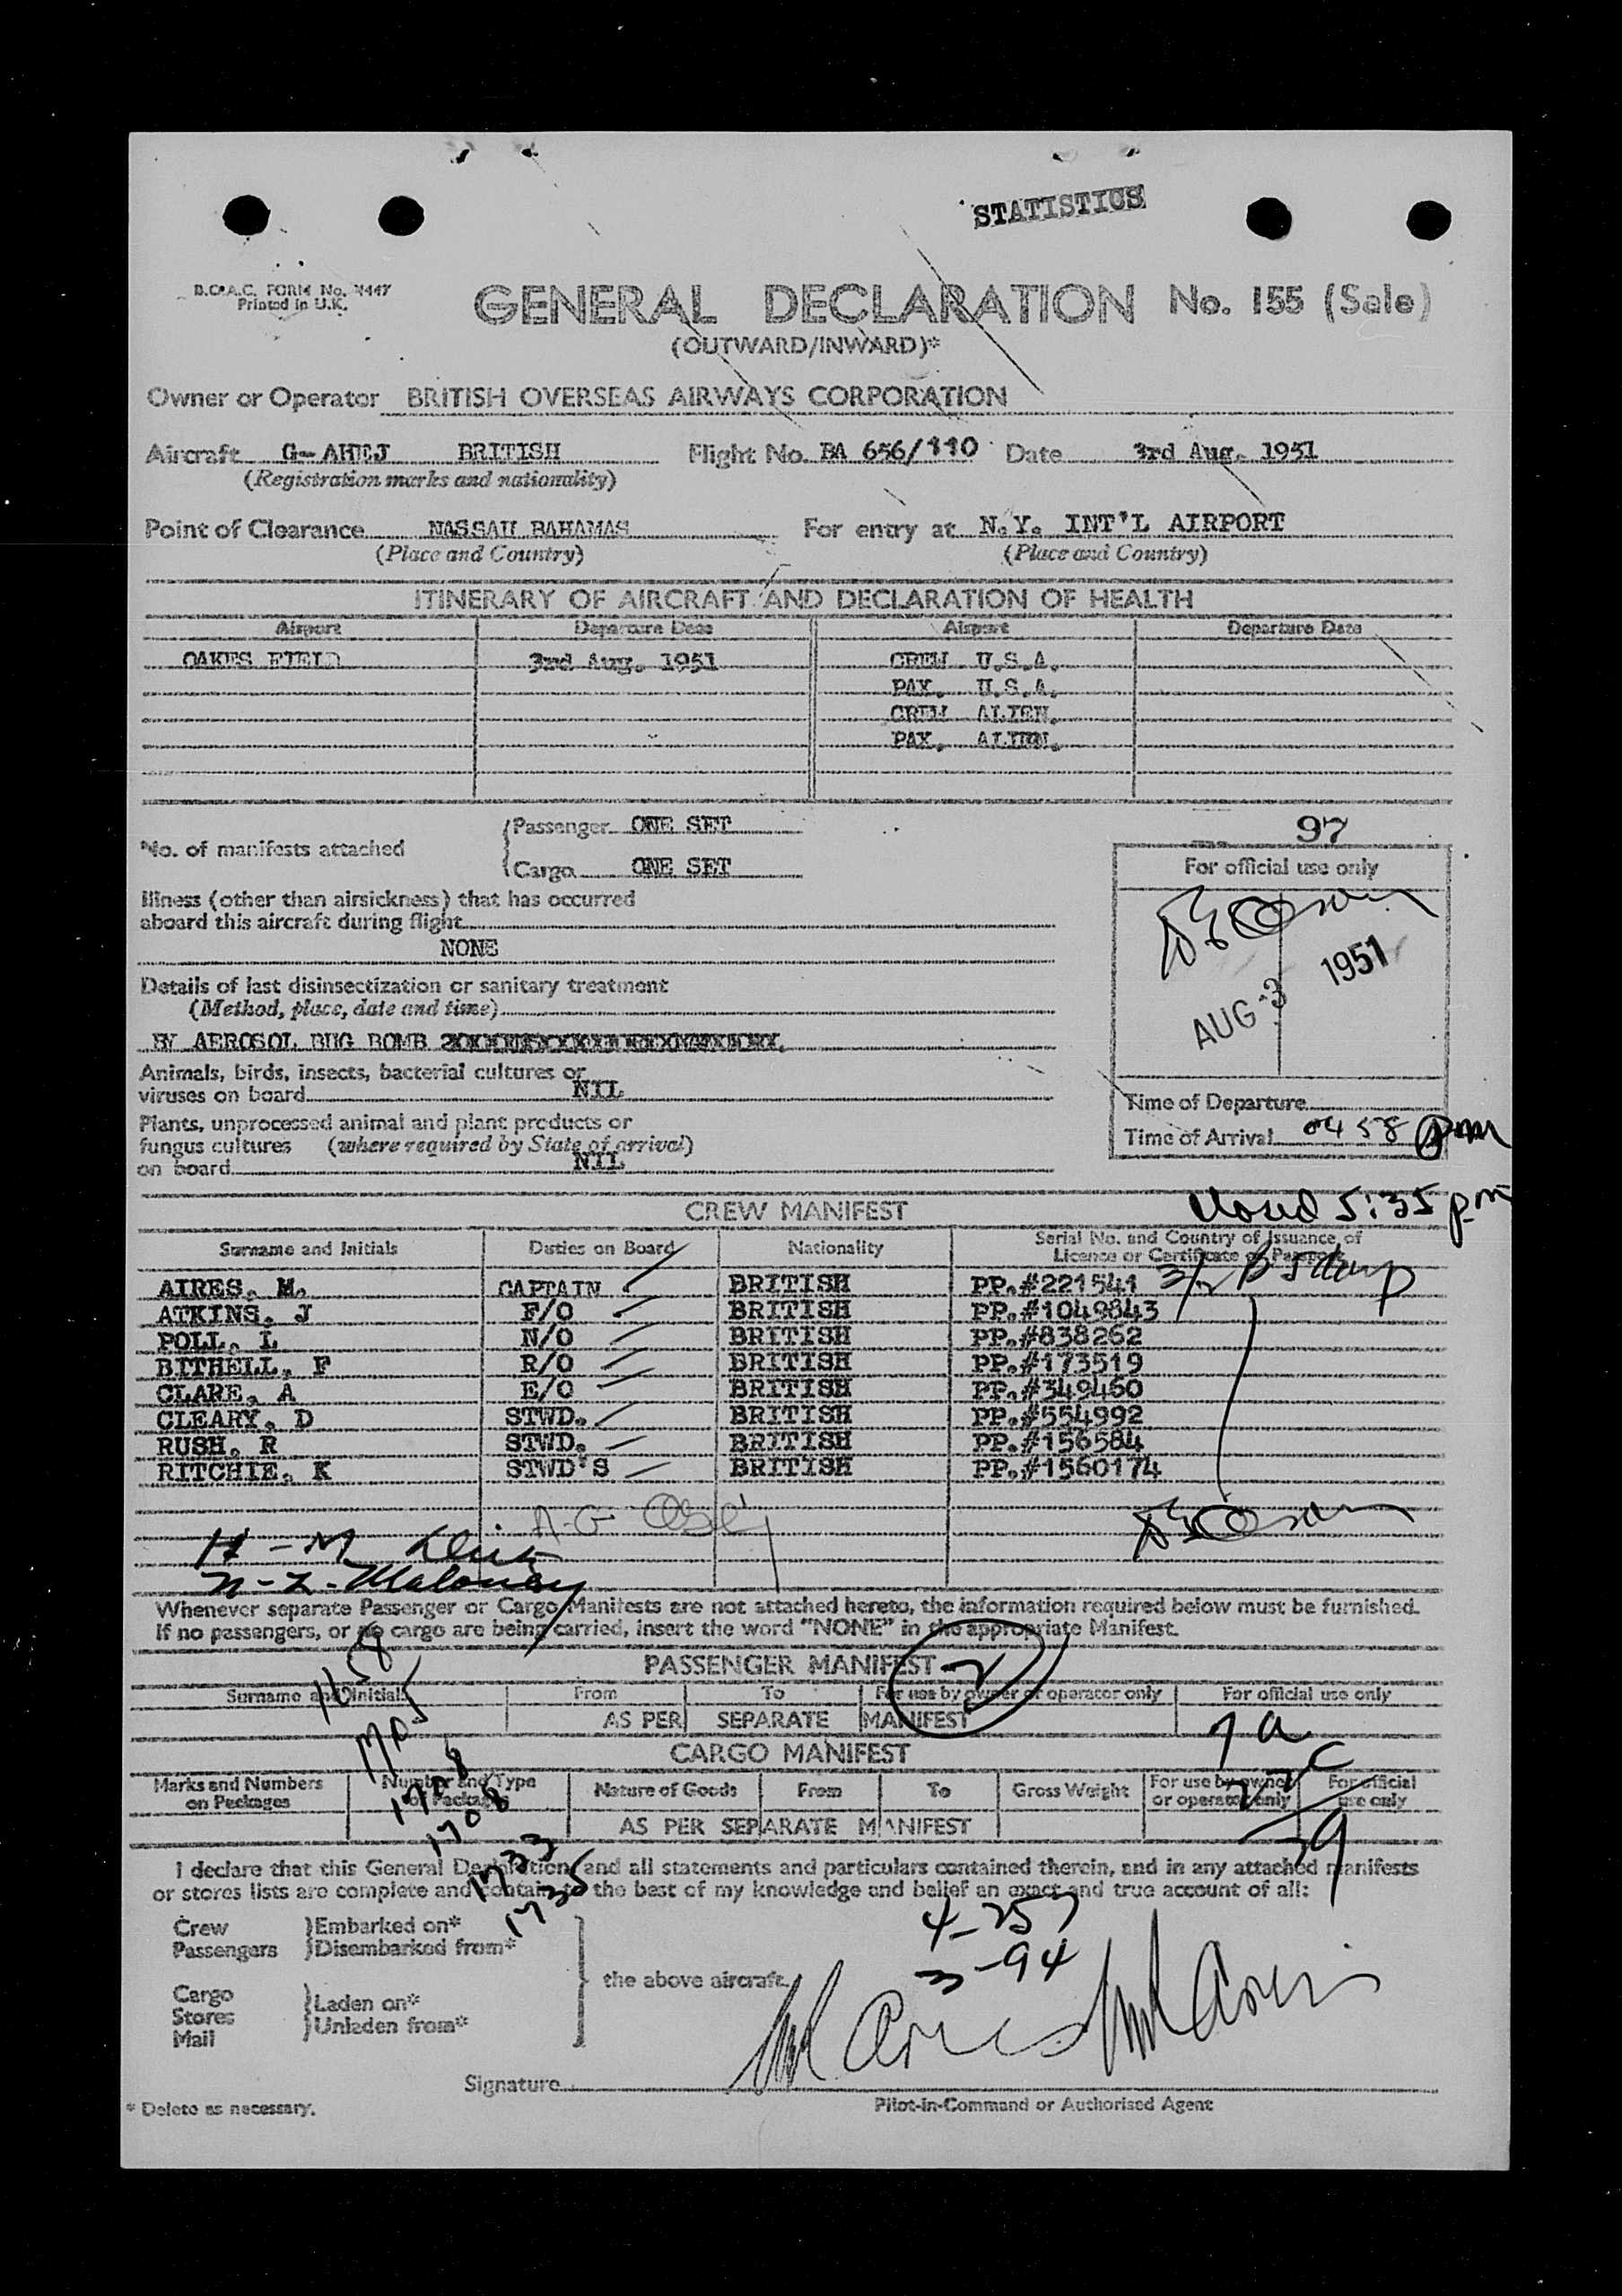 STATISTICS
B.O.A.C. FORM No. 
Printed in U.K.
GENERAL DECLARATION No. 155 (Sale)
(OUTWARD/INWARD)*
Owner or Operator BRITISH OVERSEAS AIRWAYS CORPORATION
Aircraft G-AHEJ BRITISH Flight No. BA 656/110 Date 3rd Aug. 1951
(Registration marks and nationality)
Point of Clearance NASSAU BAHAMAS For entry at N.Y. INT'L AIRPORT
(Place and Country) (Place and Country)
ITINERARY OF AIRCRAFT AND DECLARATION OF HEALTH
Airport Departure Date Airport Departure Date
OAKES FIELD 3rd Aug. 1951 CREW U.S.A.
PAX. U.S.A.
CREW ALIEN.
PAX. ALIEN.
No. of manifests attached
Passenger ONE SET
Cargo ONE SET
97
For official use only
AUG -3 1951
Illness (other than airsickness) that has occurred
aboard this aircraft during flight
NONE
Details of last disinsectization or sanitary treatment
(Method, place, date and time)
BY AEROSOL BUG BOMB
Animals, birds, insects, bacterial cultures or
viruses on board NIL
Plants, unprocessed animal and plant products or
fungus cultures (where required by State of arrival)
on board NIL
Time of Departure
Time of Arrival 0458 pm
Closed 5:35 pm
CREW MANIFEST
Surname and Initials Duties on Board Nationality Serial No. and Country of Issuance of
Licence or Certificate or Passport
AIRES, M. CAPTAIN BRITISH PP.#221541
ATKINS, J F/O BRITISH PP.#1049843
POLL, L N/O BRITISH PP.#838262
BITHELL, F R/O BRITISH PP.#173519
CLARE, A E/O BRITISH PP.#349460
CLEARY, D STWD. BRITISH PP.#554992
RUSH, R STWD. BRITISH PP.#156584
RITCHIE, K STWD'S BRITISH PP.#1560174
Whenever separate Passenger or Cargo Manifests are not attached hereto, the information required below must be furnished.
If no passengers, or no cargo are being carried, insert the word "NONE" in the appropriate Manifest.
PASSENGER MANIFEST 2
Surname and Initials From To For use by owner or operator only For official use only
AS PER SEPARATE MANIFEST
CARGO MANIFEST
Marks and Numbers on Packages Number and Type of Packages Nature of Goods From To Gross Weight For use by owner or operator only For official use only
AS PER SEPARATE MANIFEST
1708
1733
1735
I declare that this General Declaration, and all statements and particulars contained therein, and in any attached manifests
or stores lists are complete and contain to the best of my knowledge and belief an exact and true account of all:
4-257
3-94
Crew Embarked on*
Passengers Disembarked from*
the above aircraft.
Cargo
Stores Laden on*
Mail Unladen from*
Signature
Pilot-in-Command or Authorised Agent
* Delete as necessary.